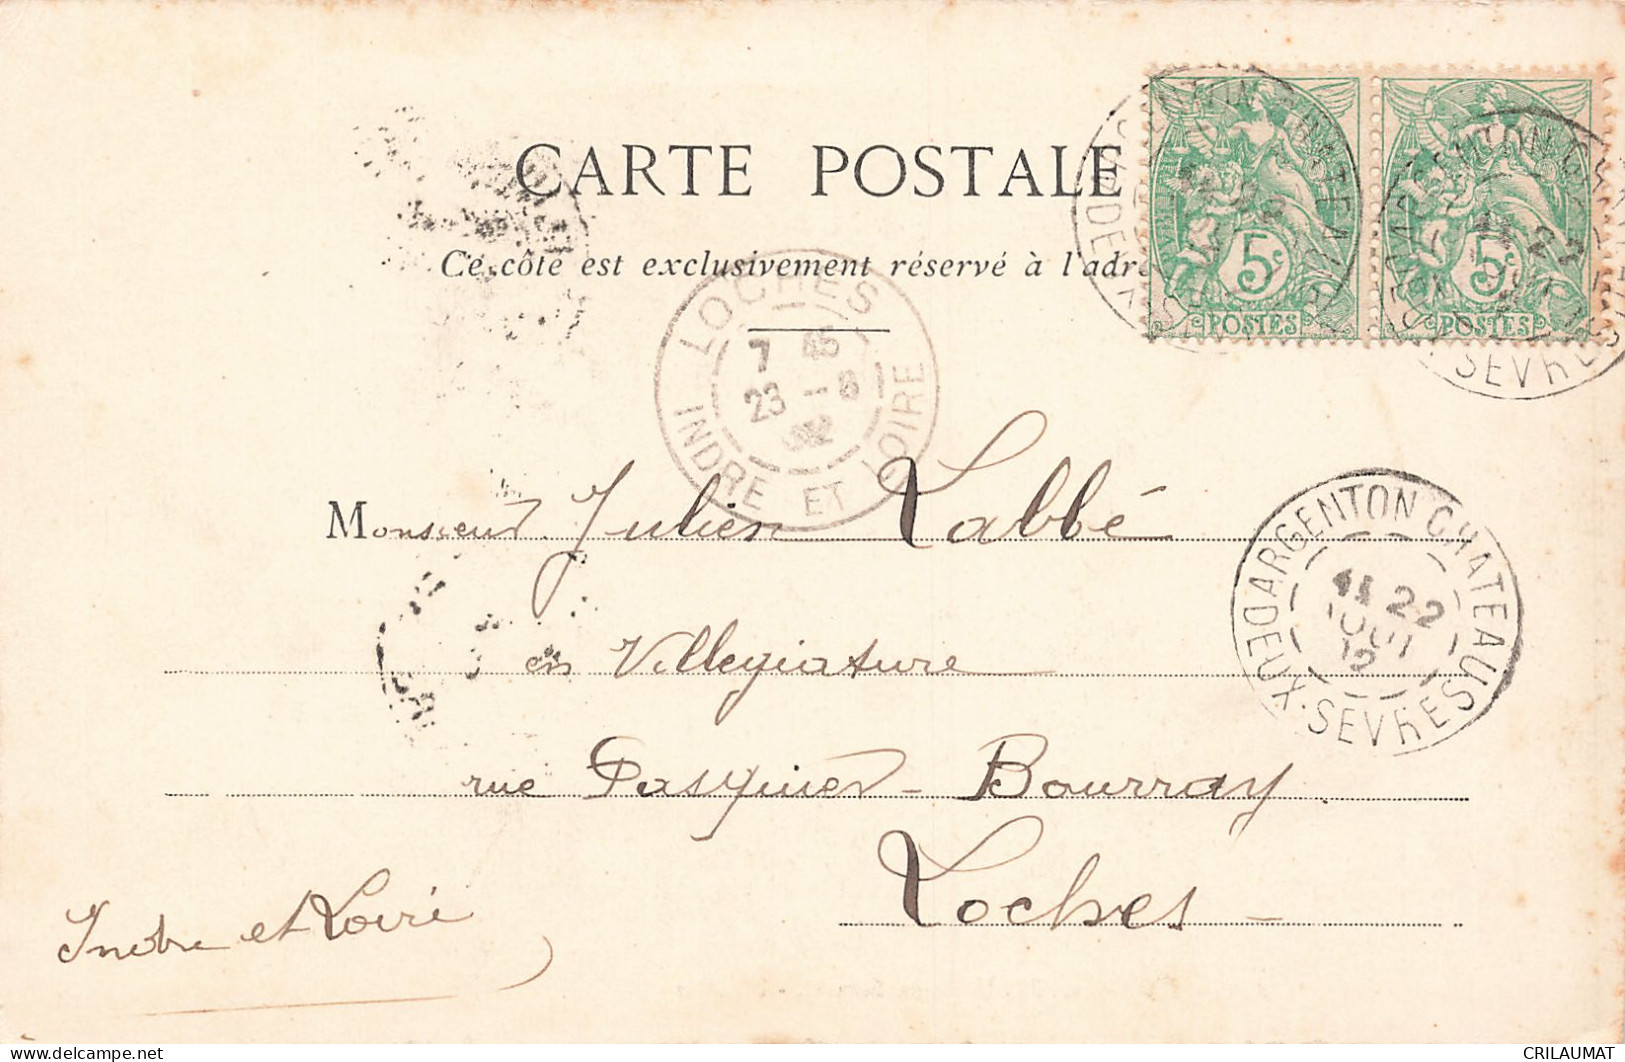 CARTE POSTALE
Ce côté est exclusivement réservé à l'adre
5c
POSTES
5c
POSTES
LOCHES
7 45
23 -8
02
INDRE ET LOIRE
Monsieur Julien Labbé
ARGENTON CHATEAU
11 22
AOUT
02
DEUX-SEVRES
en Villegiature
rue Pasquier - Bourray
Loches -
Indre et Loire
CRILAUMAT